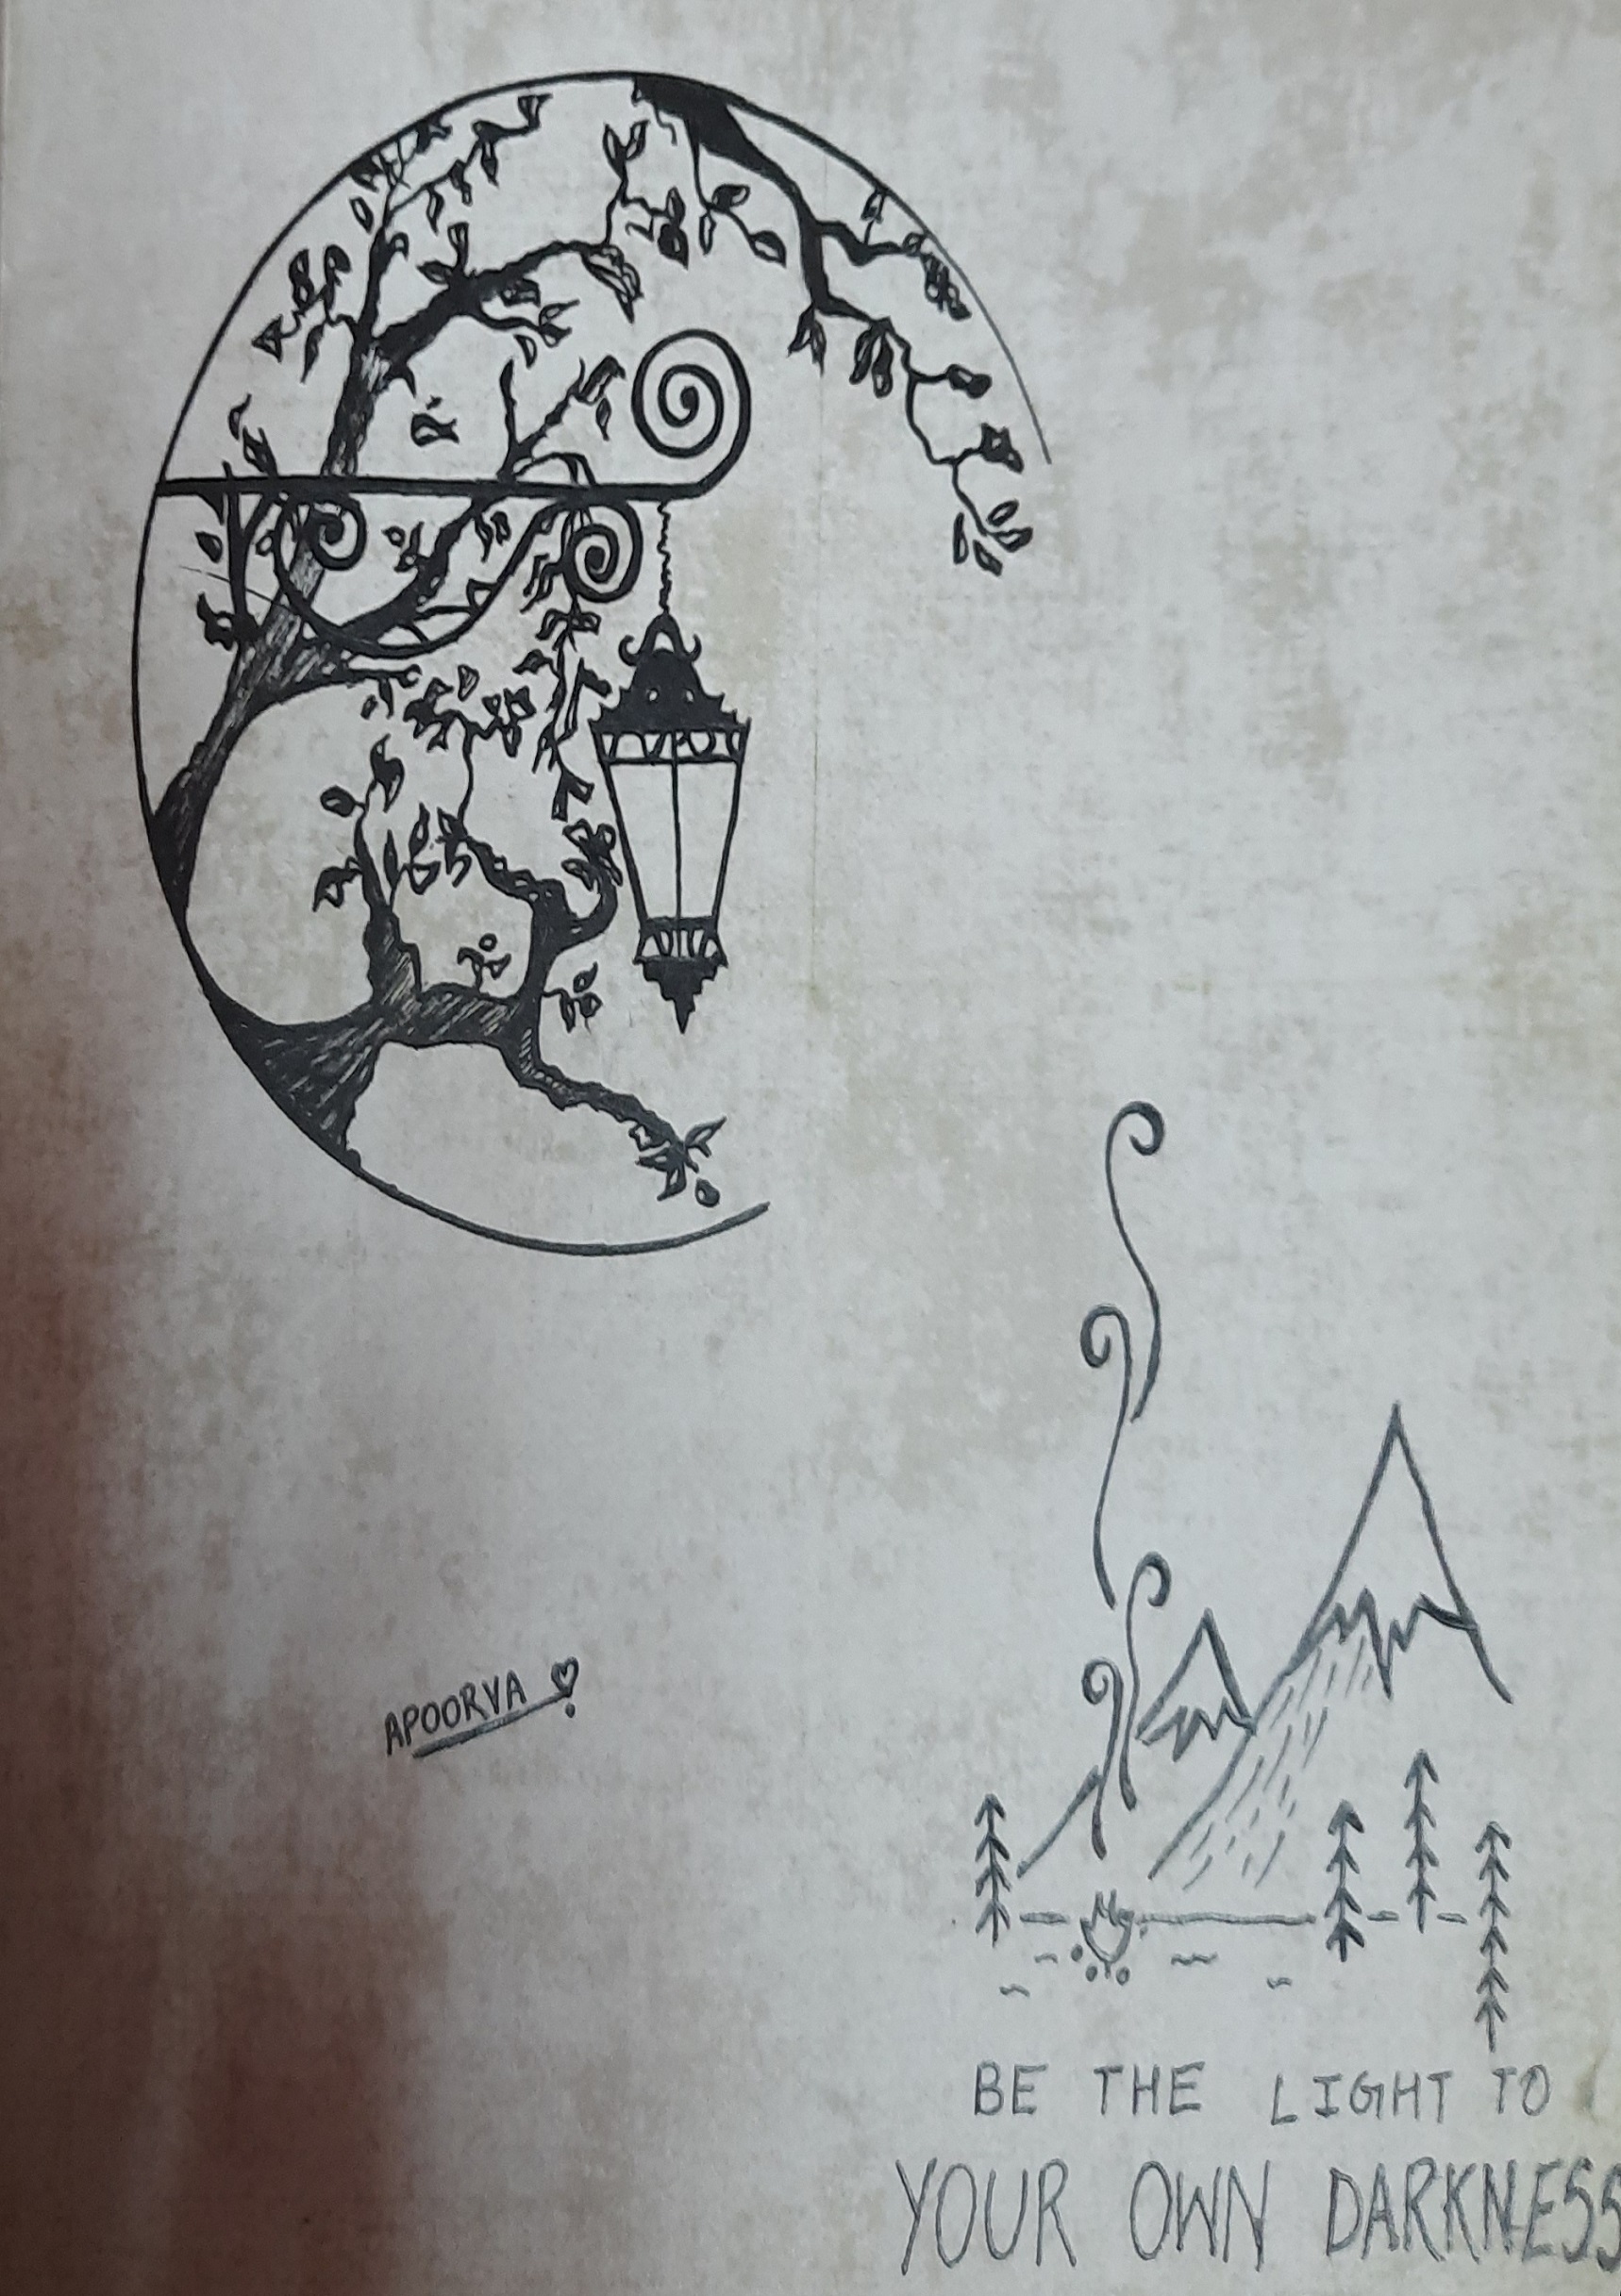 APOORVA
BE THE LIGHT TO
YOUR OWN DARKNESS